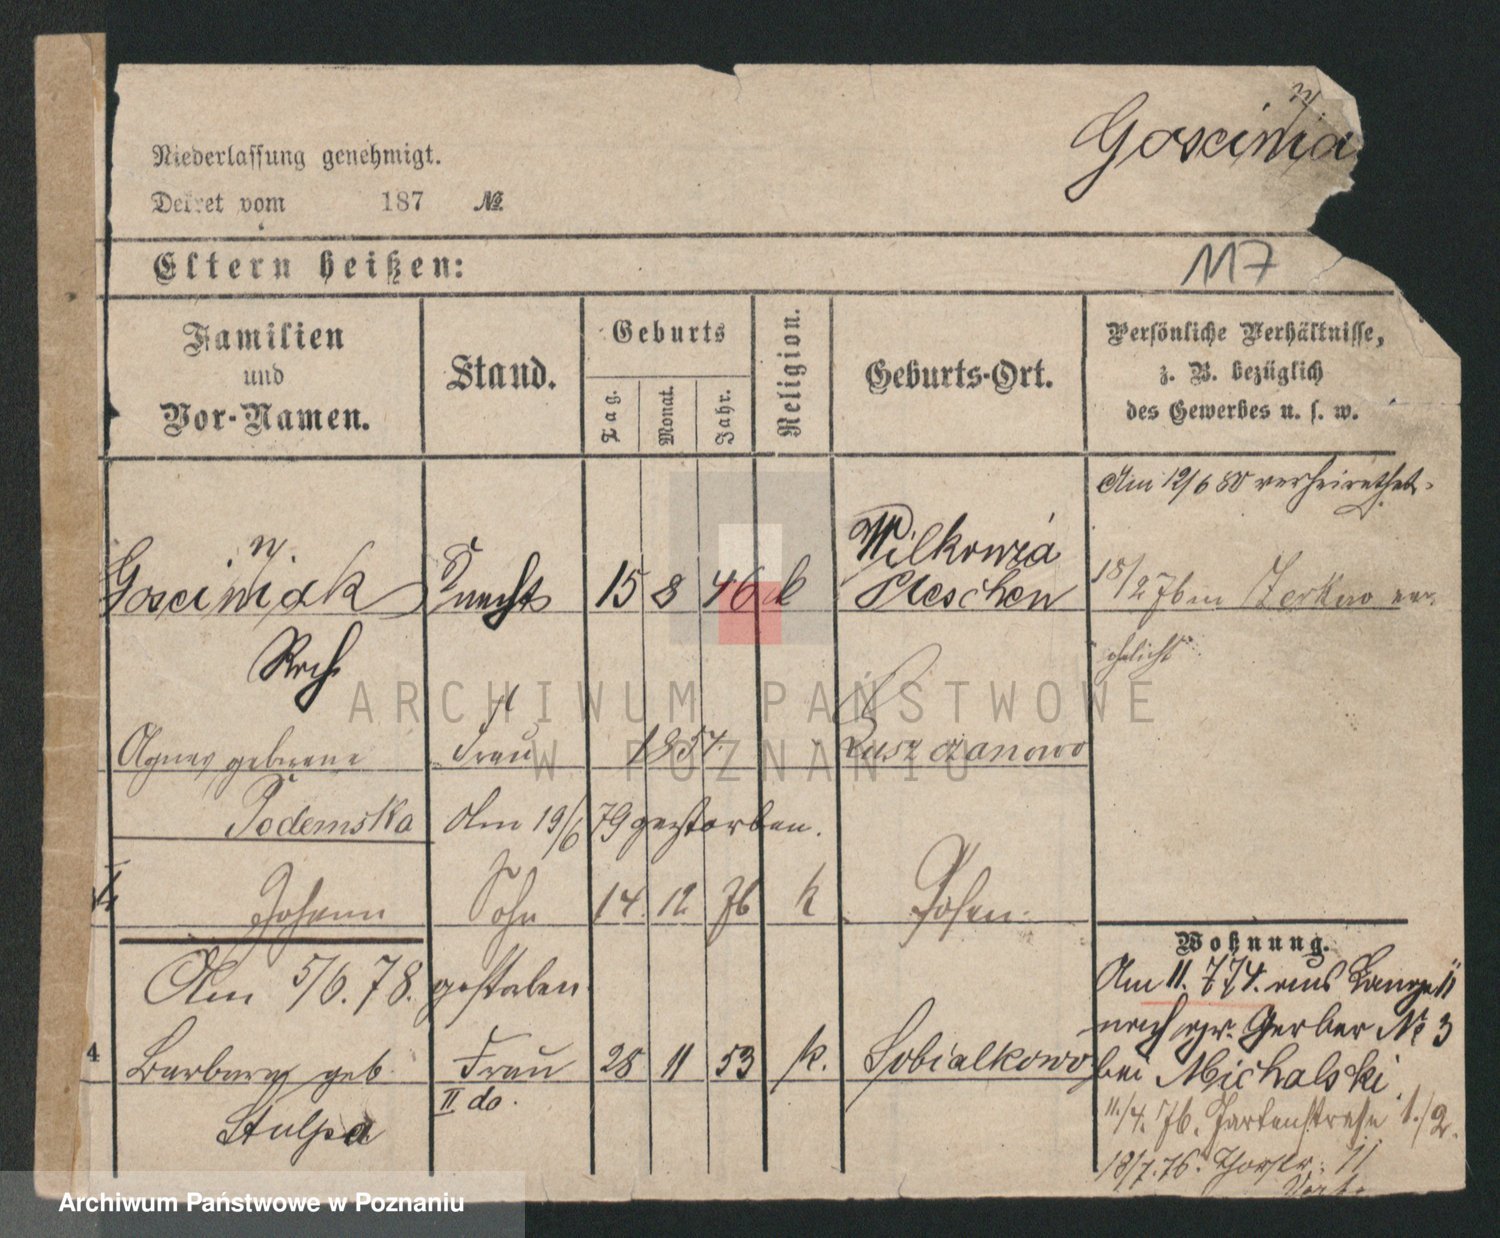 Goscinia
n
Niederlassung genehmigt.
Dekret vom 187 №
Eltern heißen:
117
Familien und Vor-Namen.
Stand.
Geburts
Tag.
Monat.
Jahr.
Religion.
Geburts-Ort.
Persönliche Verhältnisse,
z. B. bezüglich
des Gewerbes u. s. w.
Am 12/6 80 verheirathet.
n.
Gosciniak Knecht 15 8 46 k Wilkowya
Pleschen
18/2 76 in Zerkow ver
ehelicht
Agnes geborene Frau 1854. Ruszczanowo
Podemska Am 19/6 79 gestorben.
Johann Sohn 14 12 76 k Posen.
Am 5/6. 78. gestorben.
4 Barbara geb Frau 28 11 53 k. Sobialkowo
II do.
Stulpa
Wohnung.
Am 11. 7 74. aus Lange 11
nach gr. Gerber № 3
bei Michalski.
11./4. 76. Gartenstraße 1./2.
18/7. 76. Thorstr. 11
ARCHIWUM PAŃSTWOWE
W POZNANIU
Archiwum Państwowe w Poznaniu